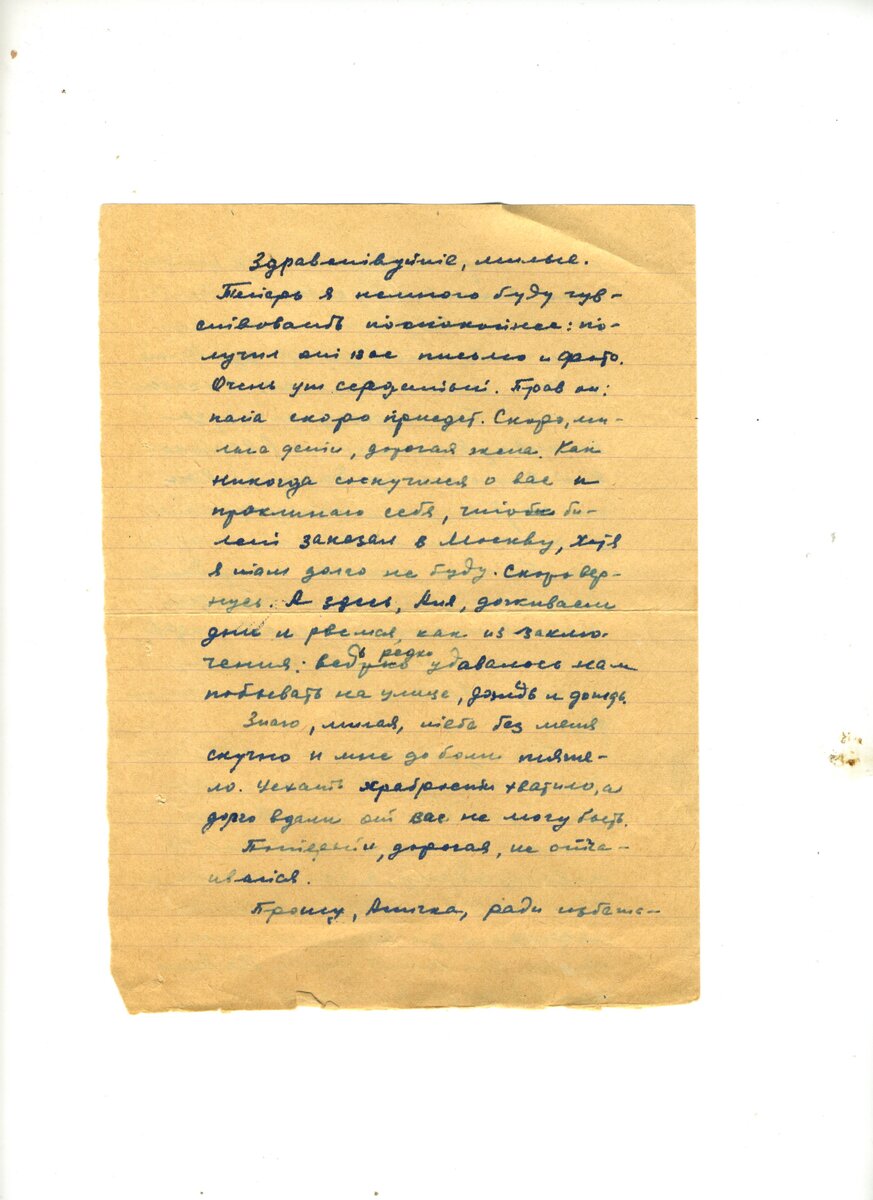 Здравствуйте, милые.
Теперь я немного буду чув-
ствовать поспокойнее: по-
лучил от вас письмо и фото.
Очень уж сердитый. Прав он:
папа скоро приедет. Скоро, ми-
лые дети, дорогая жена. Как
никогда соскучился о вас и
проклинаю себя, что би-
лет заказал в Москву, хотя
я там долго не буду. Скоро вер-
нусь. А здесь, Аня, доживаем
дни и рвемся, как из заклю-
чения: ведь редко удавалось нам
побывать на улице, дождь и дождь.
Знаю, милая, тебе без меня
скучно и мне до боли тяже-
ло. Уехать храбрости хватило, а
долго вдали от вас не могу быть.
Потерпи, дорогая, не отча-
ивайся.
Прошу, Анечка, ради избежа-